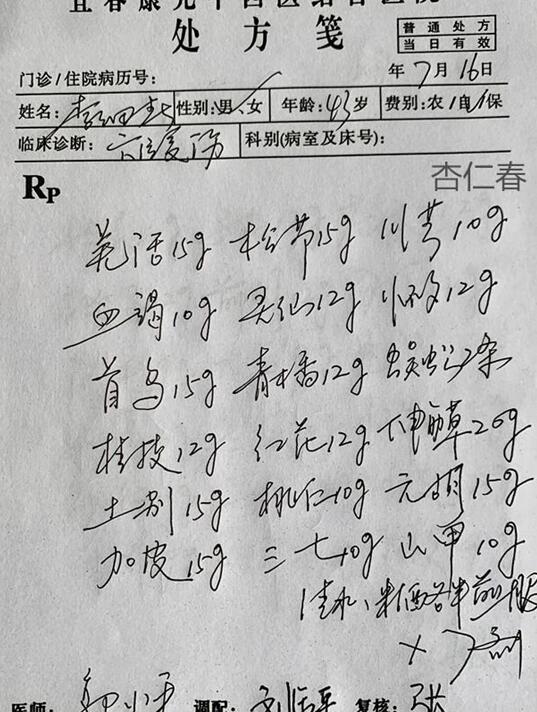 处方笺
普通处方
当日有效
门诊/住院病历号： 年7月16日
姓名： 性别：男、女 年龄：43岁 费别：农/自/保
临床诊断： 科别(病室及床号)：
杏仁春
Rp
羌活15g 松节15g 川芎10g
血竭10g 灵仙12g 12g
首乌15g 青木香12g 蜈蚣2条
桂枝12g 红花12g 伸筋草20g
土别15g 桃仁10g 元胡15g
加皮15g 三七10g 山甲10g
清水、米酒各半煎服
×7剂
医师： 调配： 复核：张